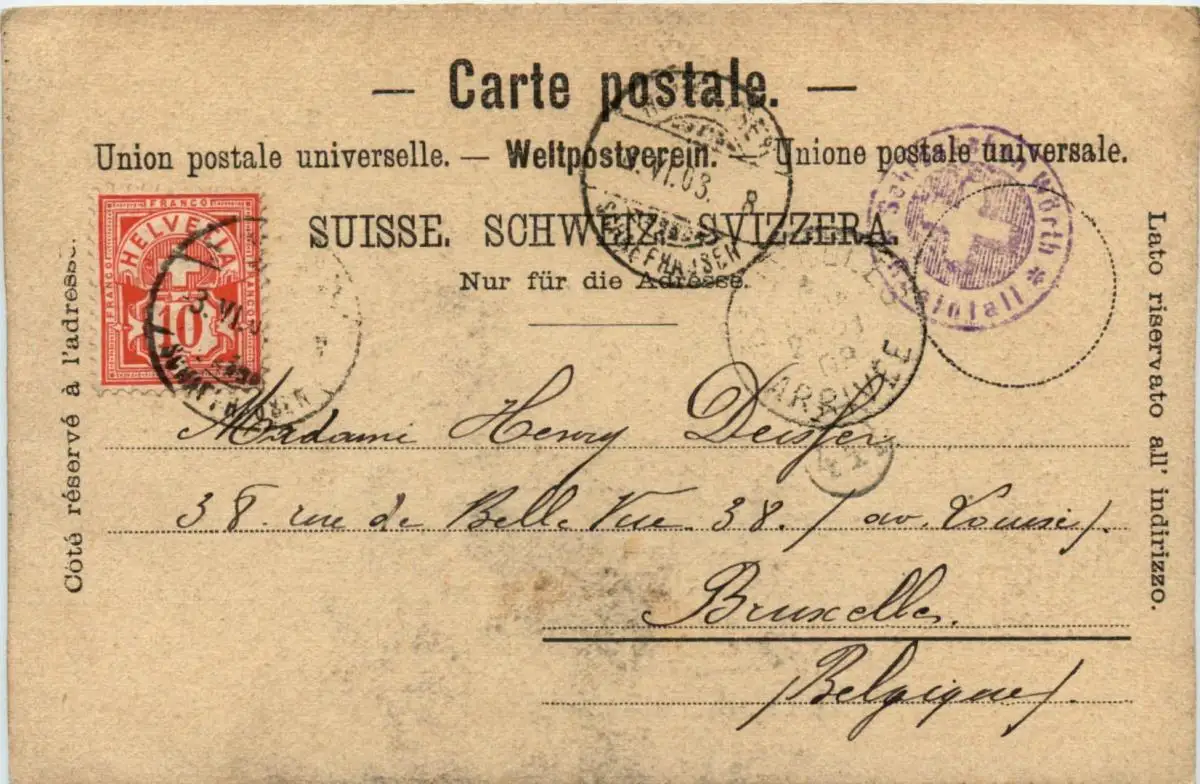 — Carte postale. —
Union postale universelle. — Weltpostverein. — Unione postale universale.
SUISSE. SCHWEIZ. SVIZZERA.
Nur für die Adresse.
Côté réservé à l'adresse.
Lato riservato all' indirizzo.
FRANCO
HELVETIA
FRANCO
FRANCO
10
3.VI.
SCHAFFHAUSEN
VI.03. 8
SCHAFFHAUSEN
BRUXELLES
ARRIVÉE
Wörth * Rheinfall *
Madame Henry
38. rue de Belle Vue 38. / av. Louise /.
Bruxelles.
/Belgique/.